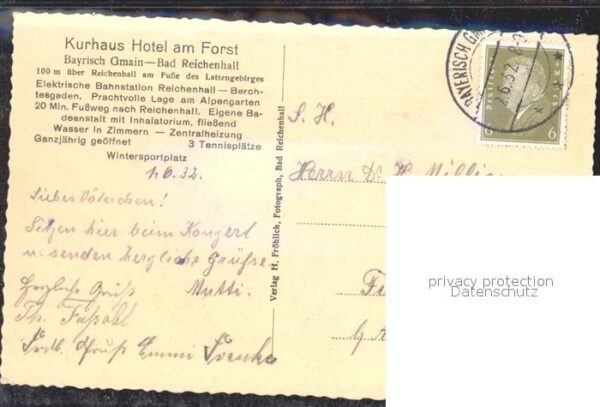 Kurhaus Hotel am Forst
Bayrisch Gmain—Bad Reichenhall
100 m über Reichenhall am Fuße des Lattengebirges
Elektrische Bahnstation Reichenhall — Berch-
tesgaden. Prachtvolle Lage am Alpengarten
20 Min. Fußweg nach Reichenhall. Eigene Ba-
deanstalt mit Inhalatorium, fließend
Wasser in Zimmern — Zentralheizung
Ganzjährig geöffnet 3 Tennisplätze
Wintersportplatz
1.6.32.
Liebes Väterchen!
Sitzen hier beim Konzert
u. senden herzliche Grüße
Mutti.
Herzliche Grüße
Emmi
Verlag H. Fröhlich, Fotograph, Bad Reichenhall
BAYERISCH GM
2.6.32
6 6
S. H.
Herrn Dr. H.
privacy protection
Datenschutz